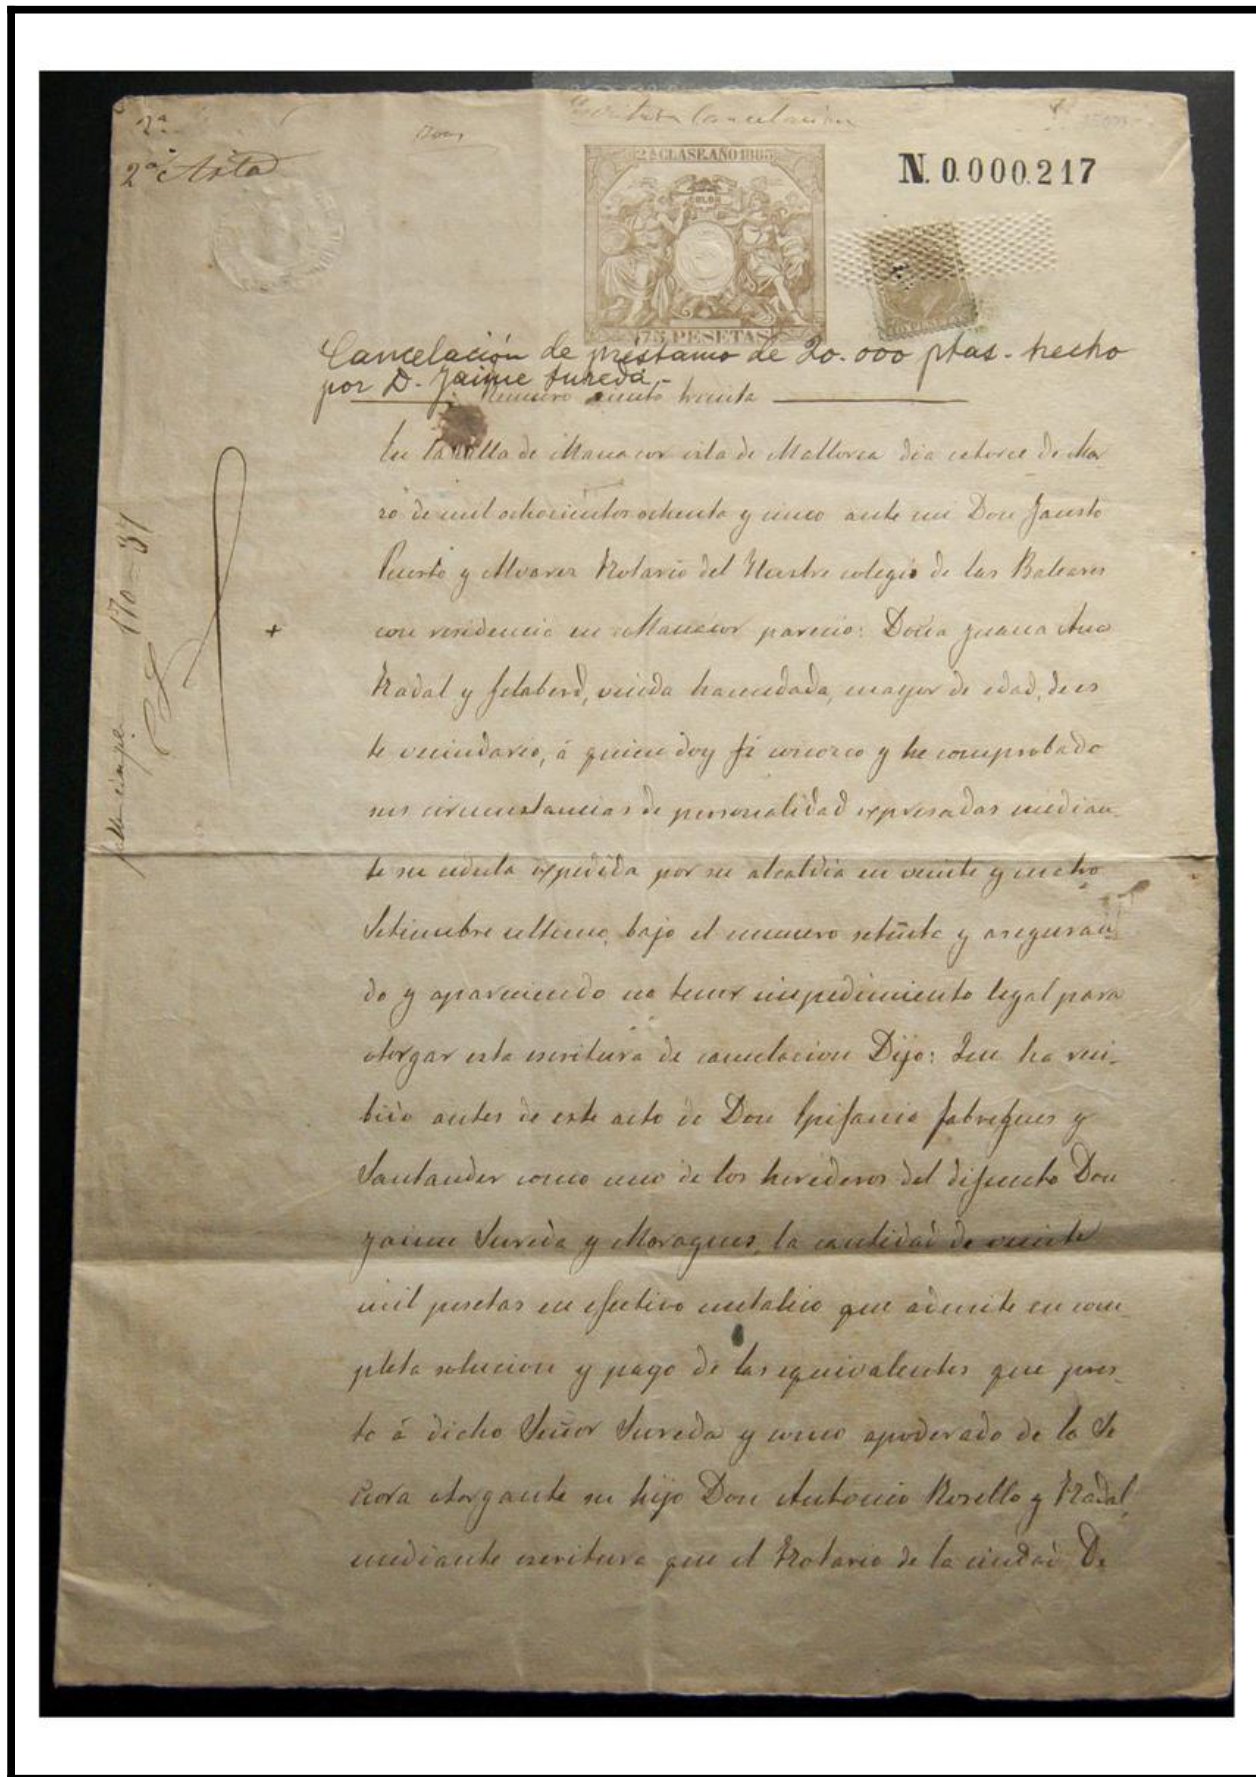 Escritura Cancelacion
2ª
2ª Asta
2ª CLASE. AÑO 1885
N. 0.000.217
75 PESETAS
Cancelación de préstamo de 20.000 ptas. hecho
por D. Jaime Sureda.-
Numero ciento treinta
En la villa de Manacor isla de Mallorca dia catorce de Mar
zo de mil ochocientos ochenta y cinco ante mi Don Fausto
Puerto y Alvarez Notario del Ilustre colegio de las Baleares
con residencia en Manacor parecio: Doña Juana Ana
Nadal y Gelaberd, viuda hacendada, mayor de edad, de es
te vecindario, á quien doy fé conozco y he comprobado
sus circunstancias de personalidad expresadas median-
te su cédula expedida por su alcaldia en veinte y ocho
Setiembre ultimo, bajo el numero setenta y aseguran
do y apareciendo no tener impedimiento legal para
otorgar esta escritura de cancelacion Dijo: Que ha reci-
bido antes de este acto de Don Epifanio Fabregues y
Santander como uno de los herederos del difunto Don
Jaime Sureda y Moragues, la cantidad de veinte
mil pesetas en efectivo metalico que admite en com-
pleta solucion y pago de las equivalentes que pres-
tó á dicho Señor Sureda y como apoderado de la Se
ñora otorgante su hijo Don Antonio Rosello y Nadal,
mediante escritura que el Notario de la ciudad De
170-37